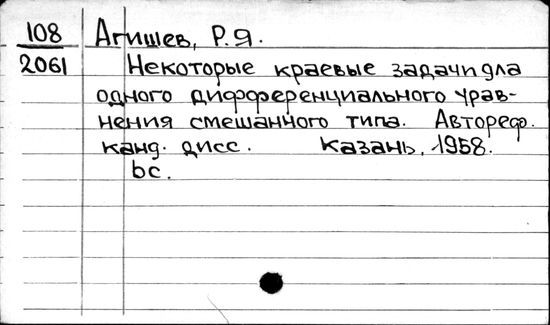 108 Агишев, Р.Я.
2061 Некоторые краевые задачи для
одного дифференциального урав-
нения смешанного типа. Автореф.
канд. дисс. Казань, 1958.
6с.